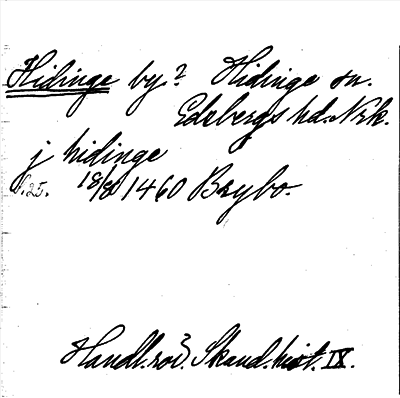 Hidinge by? Hidinge sn.
Edsbergs hd. Nrk.
j hidinge
s. 25. 18/8 1460 Brybo.
Handl. rör. Skand. hist. IX.